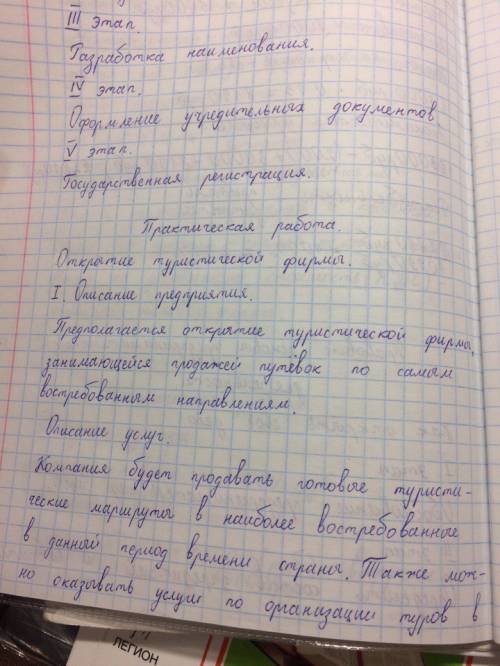 III этап.
Разработка наименования.
IV этап.
Оформление учредительных документов.
V этап.
Государственная регистрация.
Практическая работа.
Открытие туристической фирмы.
I. Описание предприятия.
Предполагается открытие туристической фирмы,
занимающейся продажей путёвок по самым
востребованным направлениям.
Описание услуг.
Компания будет продавать готовые туристи-
ческие маршруты в наиболее востребованные
в данный период времени страны. Также мож-
но оказывать услуги по организации туров в
ЛЕГИОН